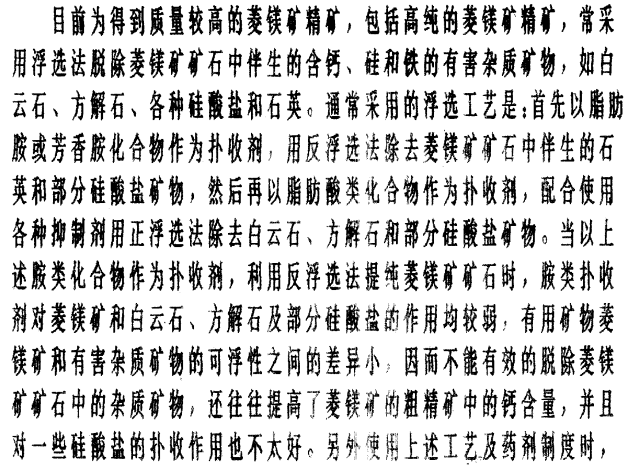 目前为得到质量较高的菱镁矿精矿，包括高纯的菱镁矿精矿，常采
用浮选法脱除菱镁矿矿石中伴生的含钙、硅和铁的有害杂质矿物，如白
云石、方解石、各种硅酸盐和石英。通常采用的浮选工艺是：首先以脂肪
胺或芳香胺化合物作为扑收剂，用反浮选法除去菱镁矿矿石中伴生的石
英和部分硅酸盐矿物，然后再以脂肪酸类化合物作为扑收剂，配合使用
各种抑制剂用正浮选法除去白云石、方解石和部分硅酸盐矿物。当以上
述胺类化合物作为扑收剂，利用反浮选法提纯菱镁矿矿石时，胺类扑收
剂对菱镁矿和白云石、方解石及部分硅酸盐的作用均较弱，有用矿物菱
镁矿和有害杂质矿物的可浮性之间的差异小，因而不能有效的脱除菱镁
矿矿石中的杂质矿物，还往往提高了菱镁矿的粗精矿中的钙含量，并且
对一些硅酸盐的扑收作用也不太好。另外使用上述工艺及药剂制度时，